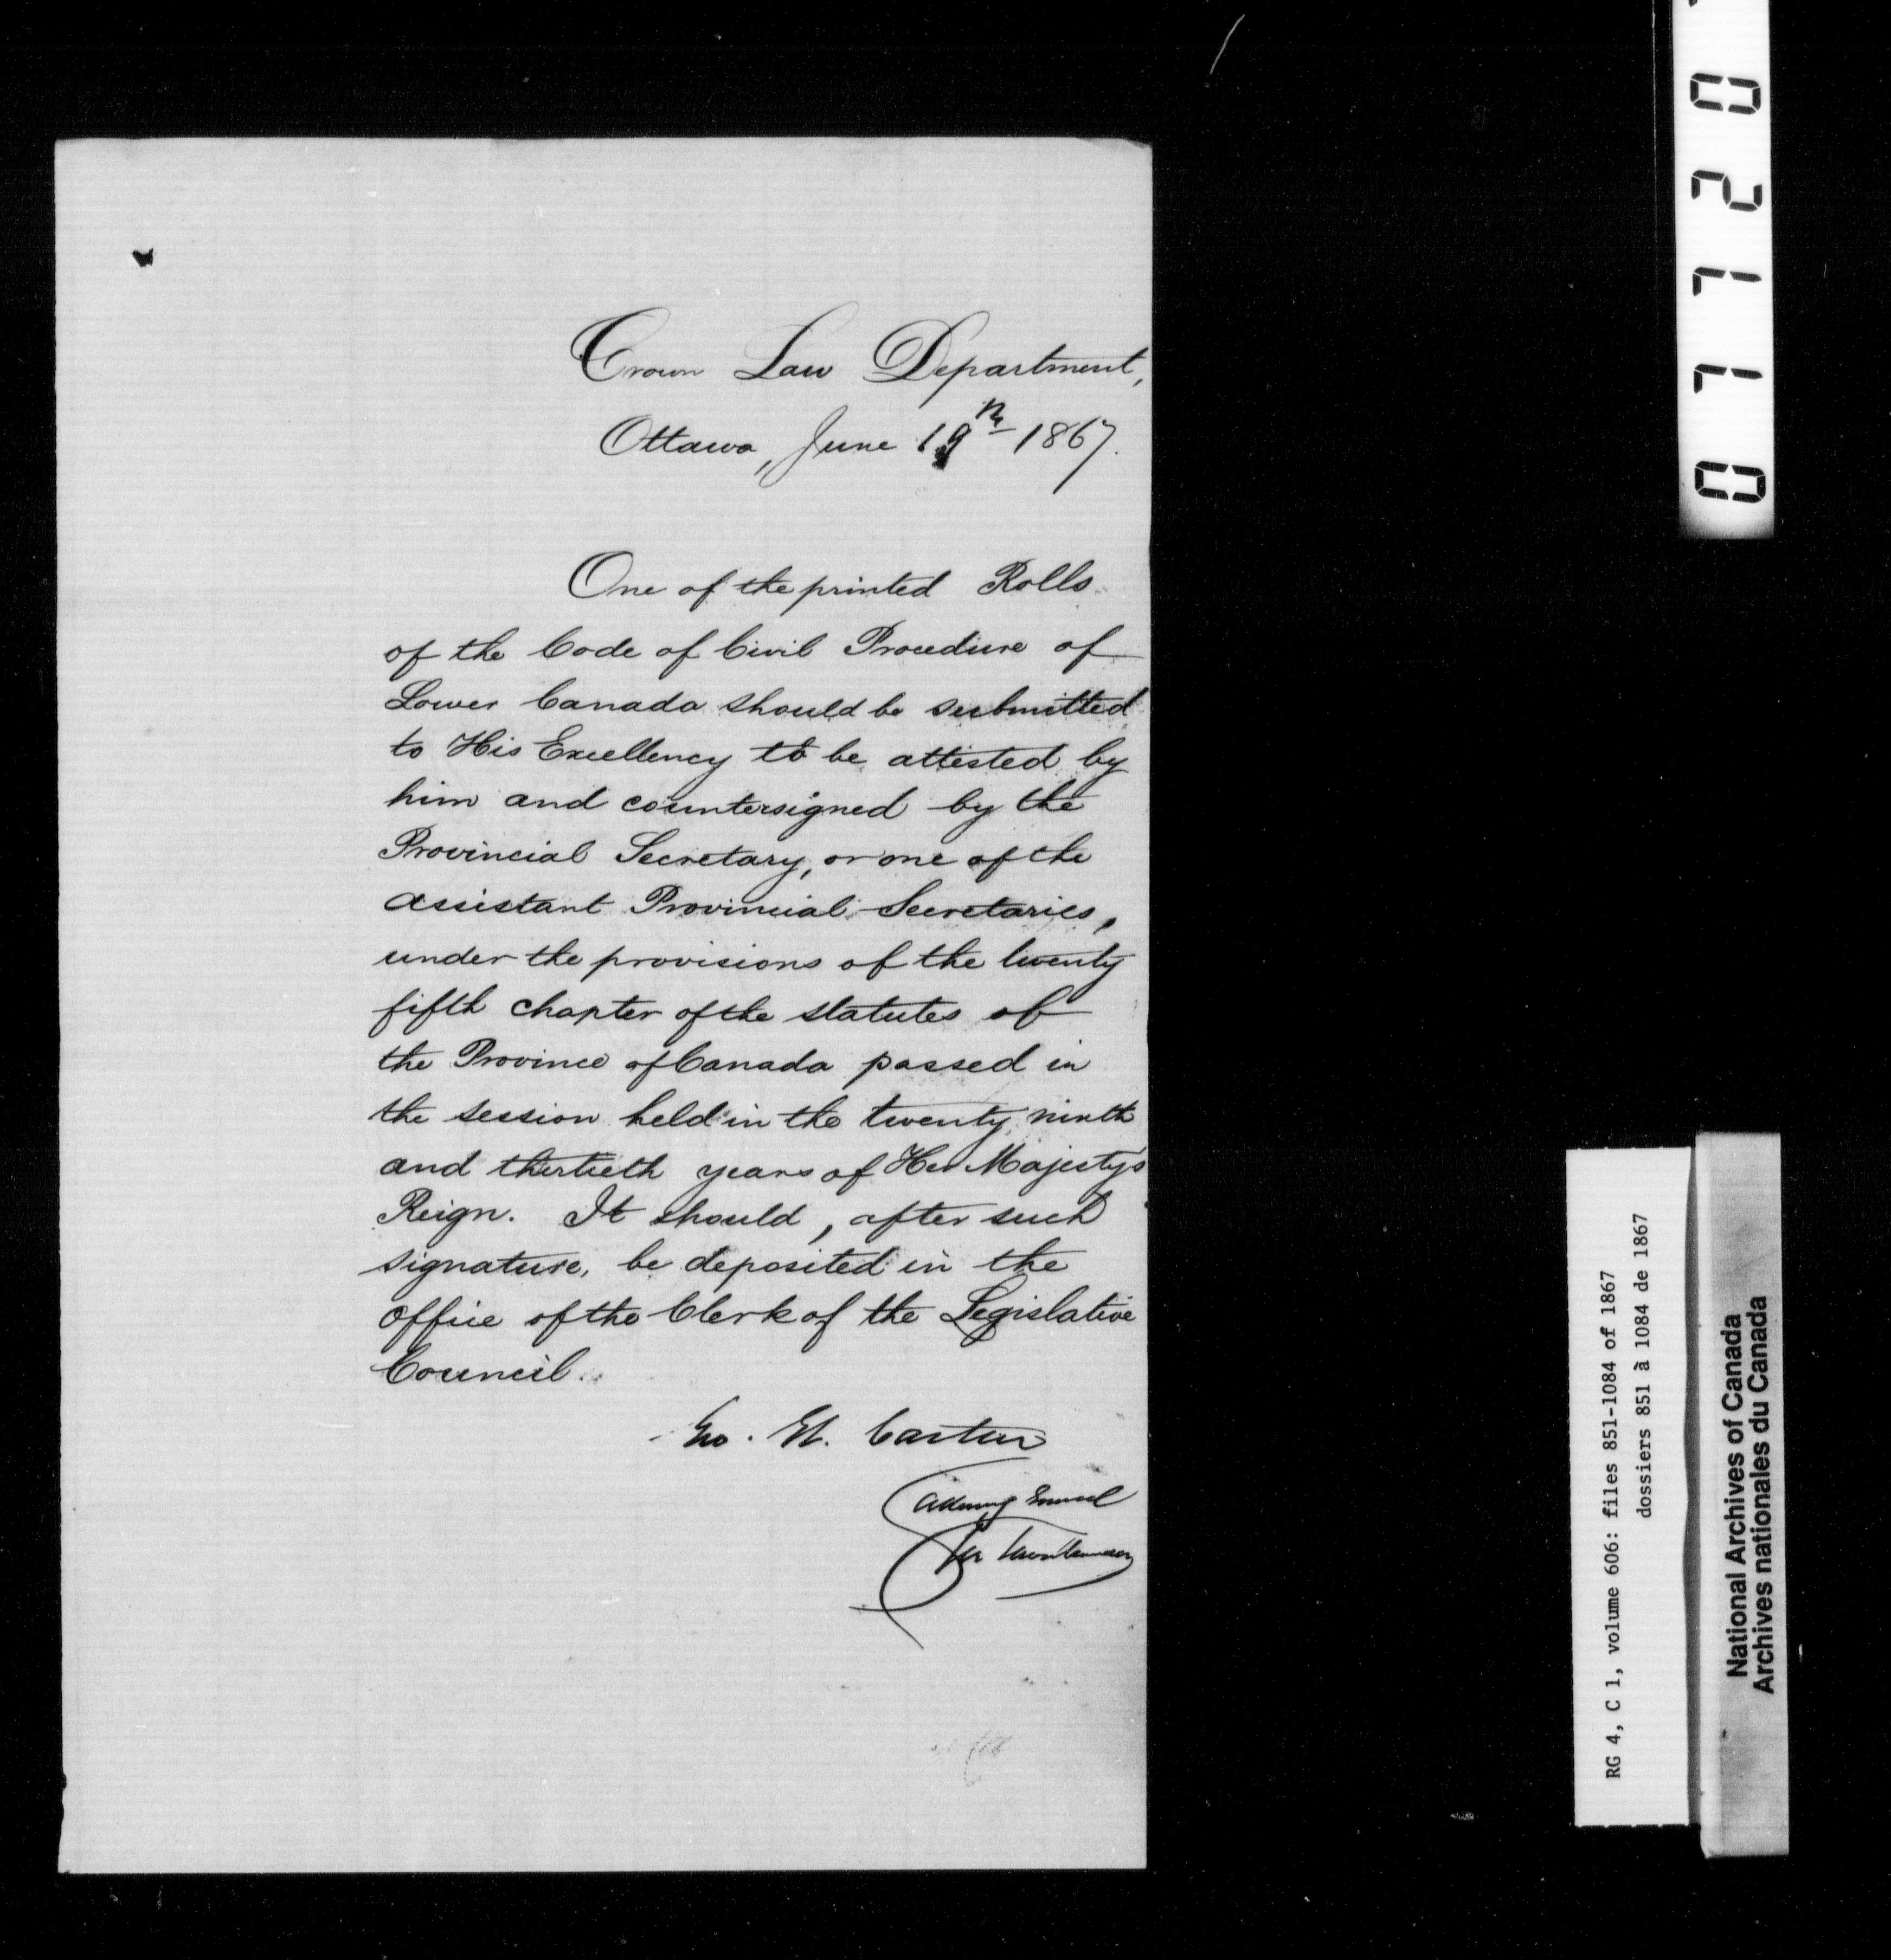 Crown Law Department,
Ottawa, June 19th 1867.
One of the printed Rolls
of the Code of Civil Procedure of
Lower Canada should be submitted
to His Excellency to be attested by
him and countersigned by the
Provincial Secretary, or one of the
assistant Provincial Secretaries,
under the provisions of the twenty
fifth chapter of the statutes of
the Province of Canada passed in
the session held in the twenty ninth
and thirtieth years of Her Majesty's
Reign. It should, after such
signature, be deposited in the
office of the Clerk of the Legislative
Council.
Geo. Et. Cartier
Attorney General
for Lower Canada
07120
RG 4, C 1, volume 606: files 851-1084 of 1867
dossiers 851 à 1084 de 1867
National Archives of Canada
Archives nationales du Canada